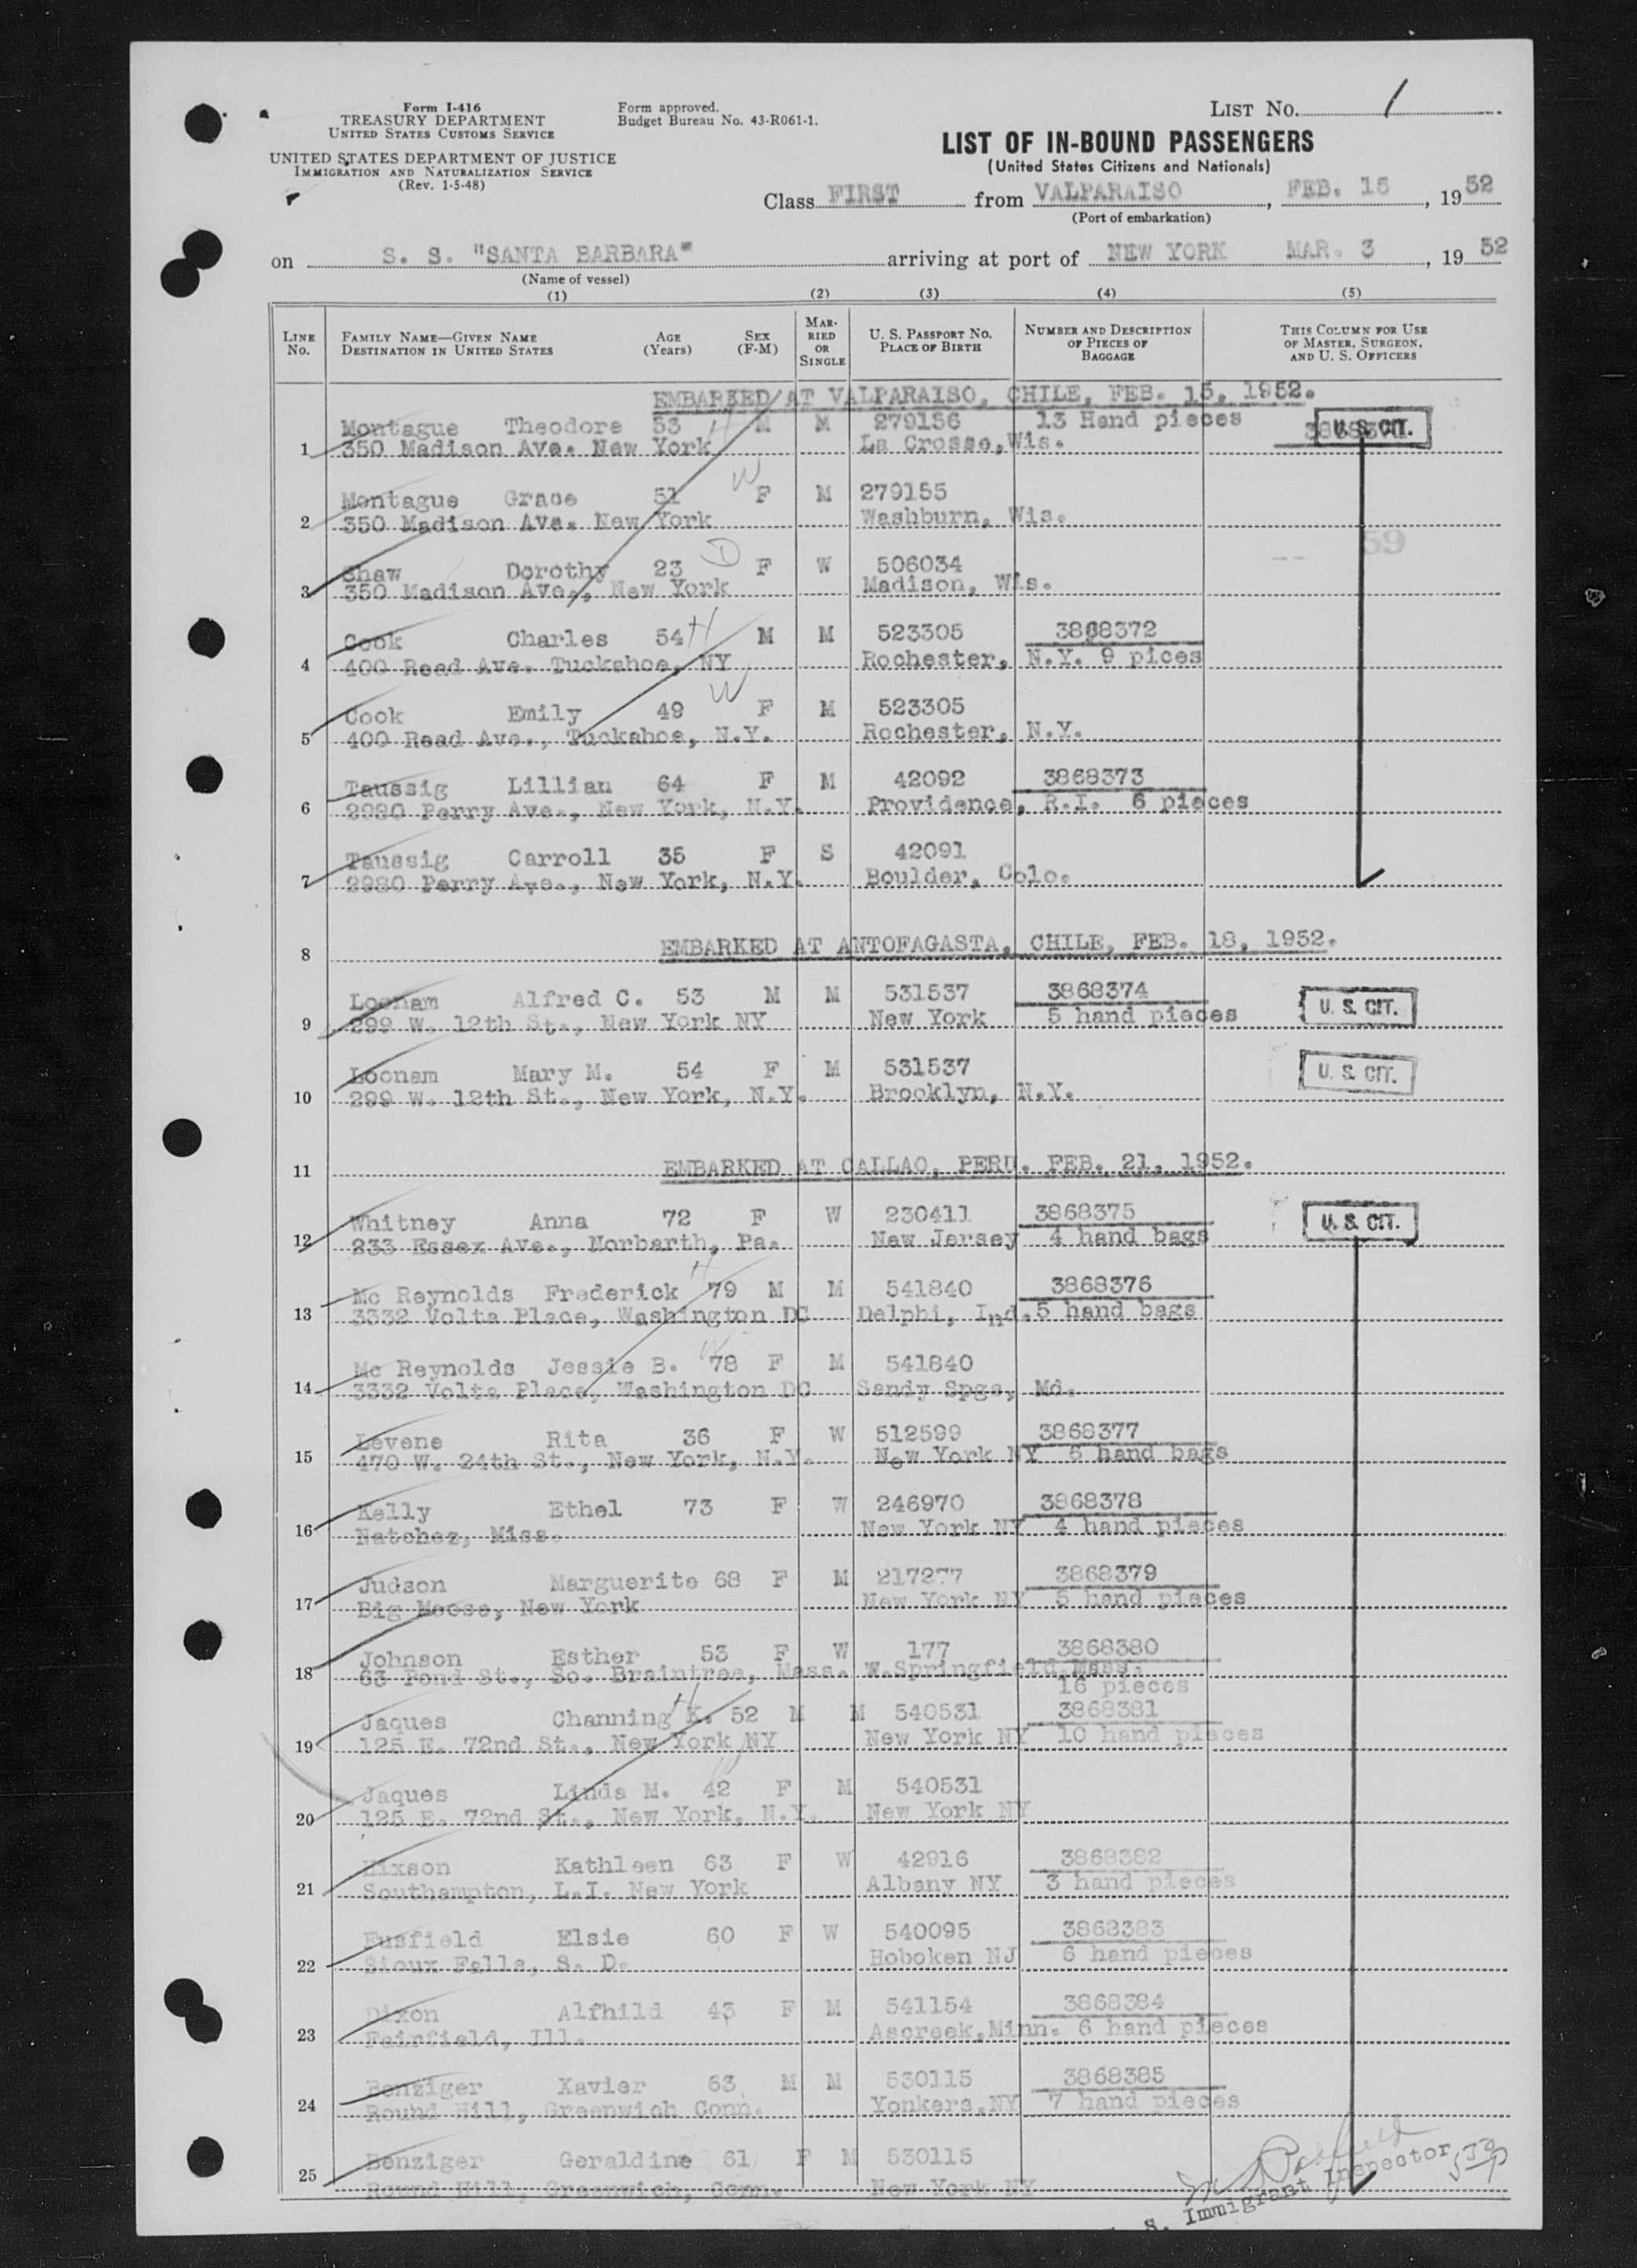 Form I-416
TREASURY DEPARTMENT
UNITED STATES CUSTOMS SERVICE
Form approved.
Budget Bureau No. 43-R061-1.
LIST NO. 1
UNITED STATES DEPARTMENT OF JUSTICE
IMMIGRATION AND NATURALIZATION SERVICE
(Rev. 1-5-48)
LIST OF IN-BOUND PASSENGERS
(United States Citizens and Nationals)
Class FIRST from VALPARAISO, FEB. 15, 1952
(Port of embarkation)
on S. S. "SANTA BARBARA" arriving at port of NEW YORK MAR. 3, 1952
(Name of vessel)
(1) (2) (3) (4) (5)
LINE No. FAMILY NAME—GIVEN NAME DESTINATION IN UNITED STATES AGE (Years) SEX (F-M) MARRIED OR SINGLE U. S. PASSPORT NO. PLACE OF BIRTH NUMBER AND DESCRIPTION OF PIECES OF BAGGAGE THIS COLUMN FOR USE OF MASTER, SURGEON, AND U. S. OFFICERS
EMBARKED AT VALPARAISO, CHILE, FEB. 15, 1952.
Montague Theodore 53 H M M 279156 13 Hand pieces U. S. CIT.
1 350 Madison Ave. New York La Crosse, Wis.
Montague Grace 51 W F M 279155
2 350 Madison Ave. New York Washburn, Wis.
59
Shaw Dorothy 23 D F W 506034
3 350 Madison Ave., New York Madison, Wis.
Cook Charles 54 H M M 523305 3868372
4 400 Read Ave. Tuckahoe, NY Rochester, N.Y. 9 pices
Cook Emily 49 W F M 523305
5 400 Read Ave., Tuckahoe, N.Y. Rochester, N.Y.
Taussig Lillian 64 F M 42092 3868373
6 2980 Perry Ave., New York, N.Y. Providence, R.I. 6 pieces
Taussig Carroll 35 F S 42091
7 2980 Perry Ave., New York, N.Y. Boulder, Colo.
8 EMBARKED AT ANTOFAGASTA, CHILE, FEB. 18, 1952.
Loonam Alfred C. 53 M M 531537 3868374 U. S. CIT.
9 299 W. 12th St., New York NY New York 5 hand pieces
Loonam Mary M. 54 F M 531537 U. S. CIT.
10 299 W. 12th St., New York, N.Y. Brooklyn, N.Y.
11 EMBARKED AT CALLAO, PERU. FEB. 21, 1952.
Whitney Anna 72 F W 230411 3868375 U. S. CIT.
12 233 Essex Ave., Norbarth, Pa. New Jersey 4 hand bags
Mc Reynolds Frederick H 79 M M 541840 3868376
13 3332 Volta Place, Washington DC Delphi, Ind. 5 hand bags
Mc Reynolds Jessie B. W 78 F M 541840
14 3332 Volta Place, Washington DC Sandy Spgs, Md.
Levene Rita 36 F W 512599 3868377
15 470 W. 24th St., New York, N.Y. New York NY 6 hand bags
Kelly Ethel 73 F W 246970 3868378
16 Natchez, Miss. New York NY 4 hand pieces
Judson Marguerite 68 F M 217277 3868379
17 Big Moose, New York New York NY 5 hand pieces
Johnson Esther 53 F W 177 3868380
18 63 Pond St., So. Braintree, Mass. W.Springfield, Mass.
16 pieces
Jaques Channing K. 52 M M 540531 3868381
19 125 E. 72nd St., New York NY New York NY 10 hand pieces
Jaques Linda M. 42 F M 540531
20 125 E. 72nd St., New York, N.Y. New York NY
Hixson Kathleen 63 F W 42916 3868382
21 Southampton, L.I. New York Albany NY 3 hand pieces
Fusfield Elsie 60 F W 540095 3868383
22 Sioux Falls, S. D. Hoboken NJ 6 hand pieces
Dixon Alfhild 43 F M 541154 3868384
23 Fairfield, Ill. Ascreek, Minn. 6 hand pieces
Benziger Xavier 63 M M 530115 3868385
24 Round Hill, Greenwich Conn. Yonkers, NY 7 hand pieces
Benziger Geraldine 61 F M 530115
25 Round Hill, Greenwich, Conn. New York NY
S. Immigrant Inspector